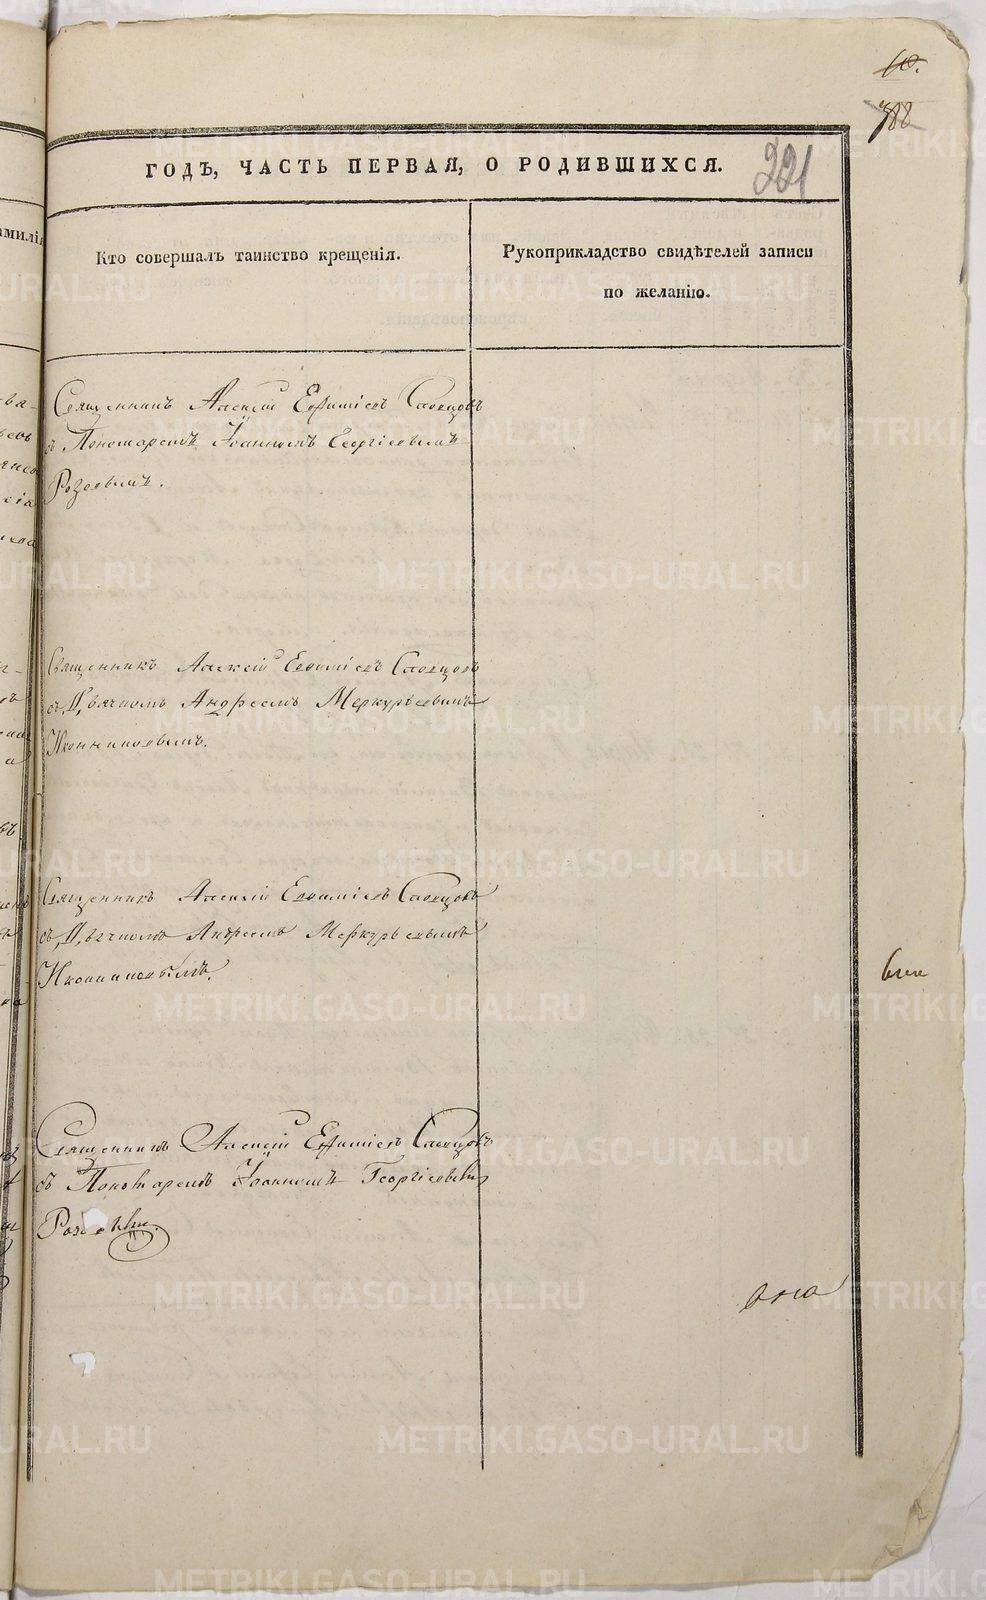 10.
788
221
ГОДЪ, ЧАСТЬ ПЕРВАЯ, О РОДИВШИХСЯ.
Кто совершалъ таинство крещенія.
Рукоприкладство свидѣтелей записи
по желанію.
Священникъ Алексій Евфиміевъ Словцовъ
съ Пономаремъ Іоанномъ Георгіевымъ
Священникъ Алексій Евѳиміевъ Словцовъ
съ Дьячкомъ Андреемъ Меркурьевымъ
Иконниковымъ.
Священникъ Алексій Евѳиміевъ Словцовъ
съ Дьячкомъ Андреемъ Меркурьевымъ
Иконниковымъ.
Священникъ Алексій Евфиміевъ Словцовъ
съ Пономаремъ Іоанномъ Георгіевымъ
METRIKI.GASO-URAL.RU